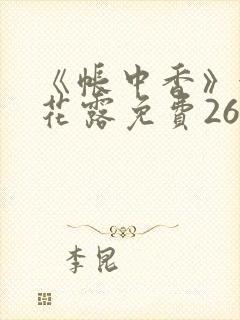 《帐中香》
花露免費26
李昆